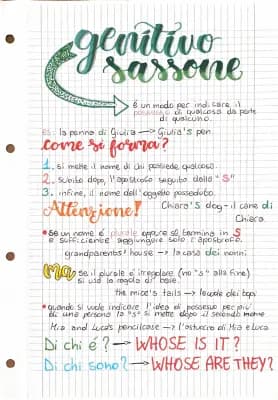 genitivo
sassone
è un modo per indicare il
possesso di qualcosa da parte
di qualcuno.
es: la penna di Giulia → Giulia's pen
come si forma?
1. si mette il nome di chi possiede qualcosa.
2. subito dopo, l'apostrofo seguito dalla "S"
3. infine, il nome dell'oggetto posseduto.
Chiara's dog - il cane di
Chiara
Attenzione!
• Se un nome è plurale oppure se termina in S
è sufficiente aggiungere solo l'apostrofo.
grandparents' house → la casa dei nonni
MA se il plurale è irregolare (no "s" alla fine)
si usa la regola di base.
the mice's tails → le code dei topi
• quando si vuole indicare l'idea di possesso per più
di una persona la "s" si mette dopo il secondo nome
Mia and Luca's pencilcase → l'astuccio di Mia e Luca
Di chi è? → WHOSE IS IT?
Di chi sono? → WHOSE ARE THEY?